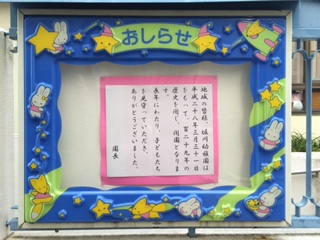 おしらせ
地域の皆様、堀川幼稚園は
平成二十八年三月三十一日
をもって、百二十九年の
歴史を閉じ、閉園となりま
す。
長年にわたり、子どもたち
を見守っていただき、
ありがとうございました。
園長